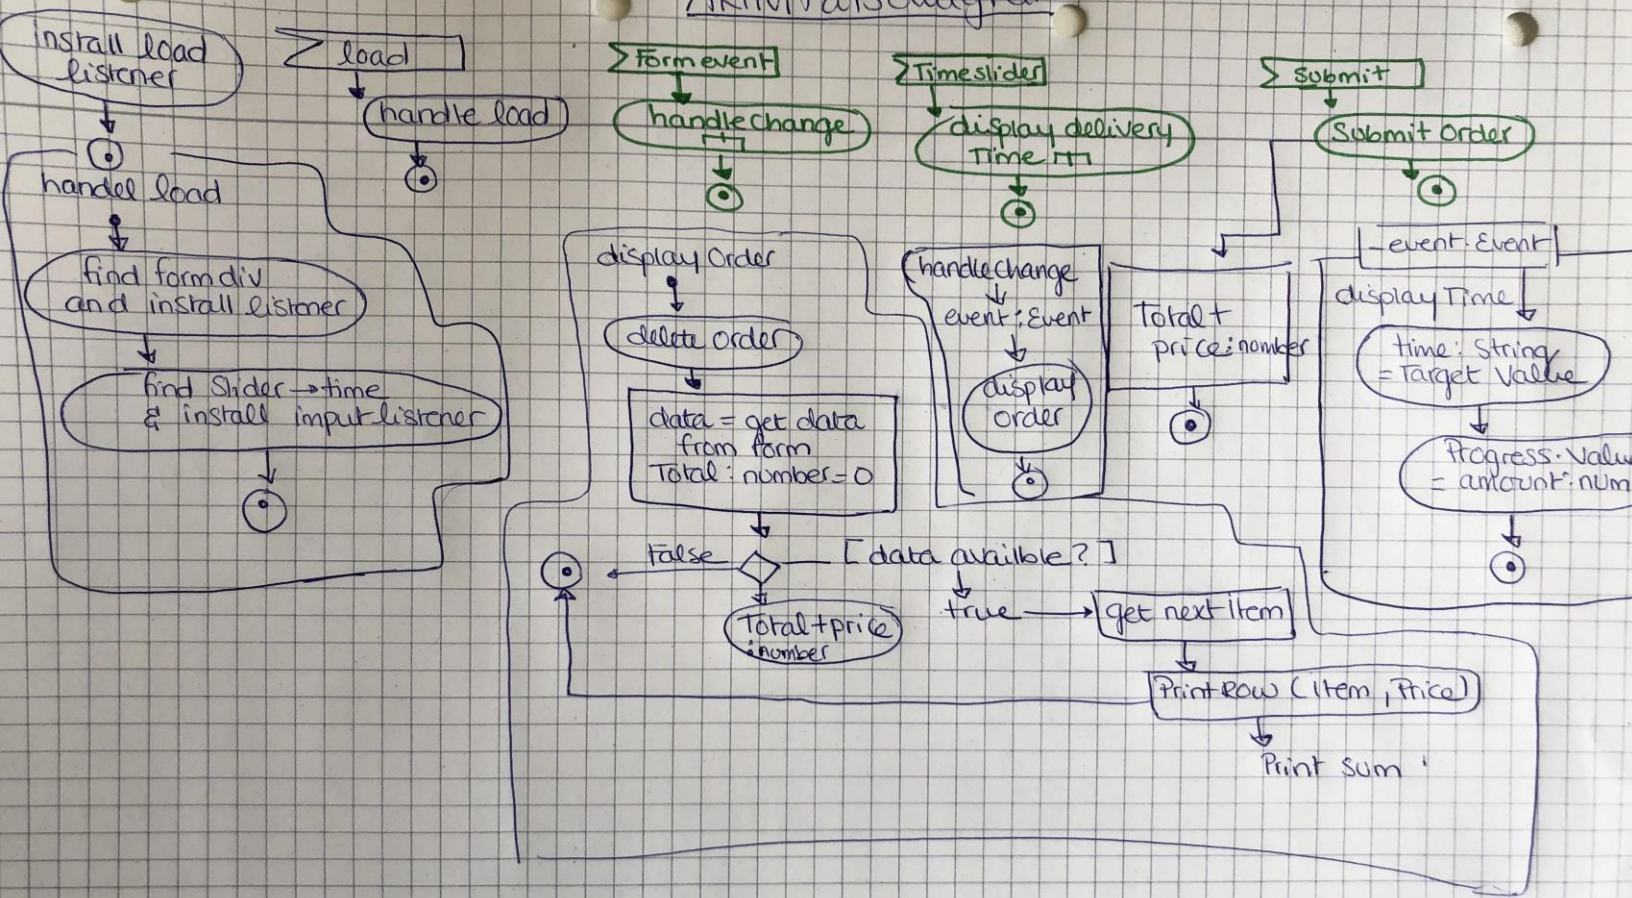 install load
listener
load
handle load
Formevent
handlechange
Timeslider
display delivery
Time
submit
Submit order
handel load
find form div
and install listener
find Slider → time
& install imput listener
display Order
delete order
data = get data
from form
Total : number = 0
False
[data availble?]
true
get next item
Total + price
: number
Print Row (item, Price)
Print sum
handlechange
event : Event
display
order
Total +
price : number
- event. Event
display Time
time : String
= Target Value
Progress. Valu
= amount : num